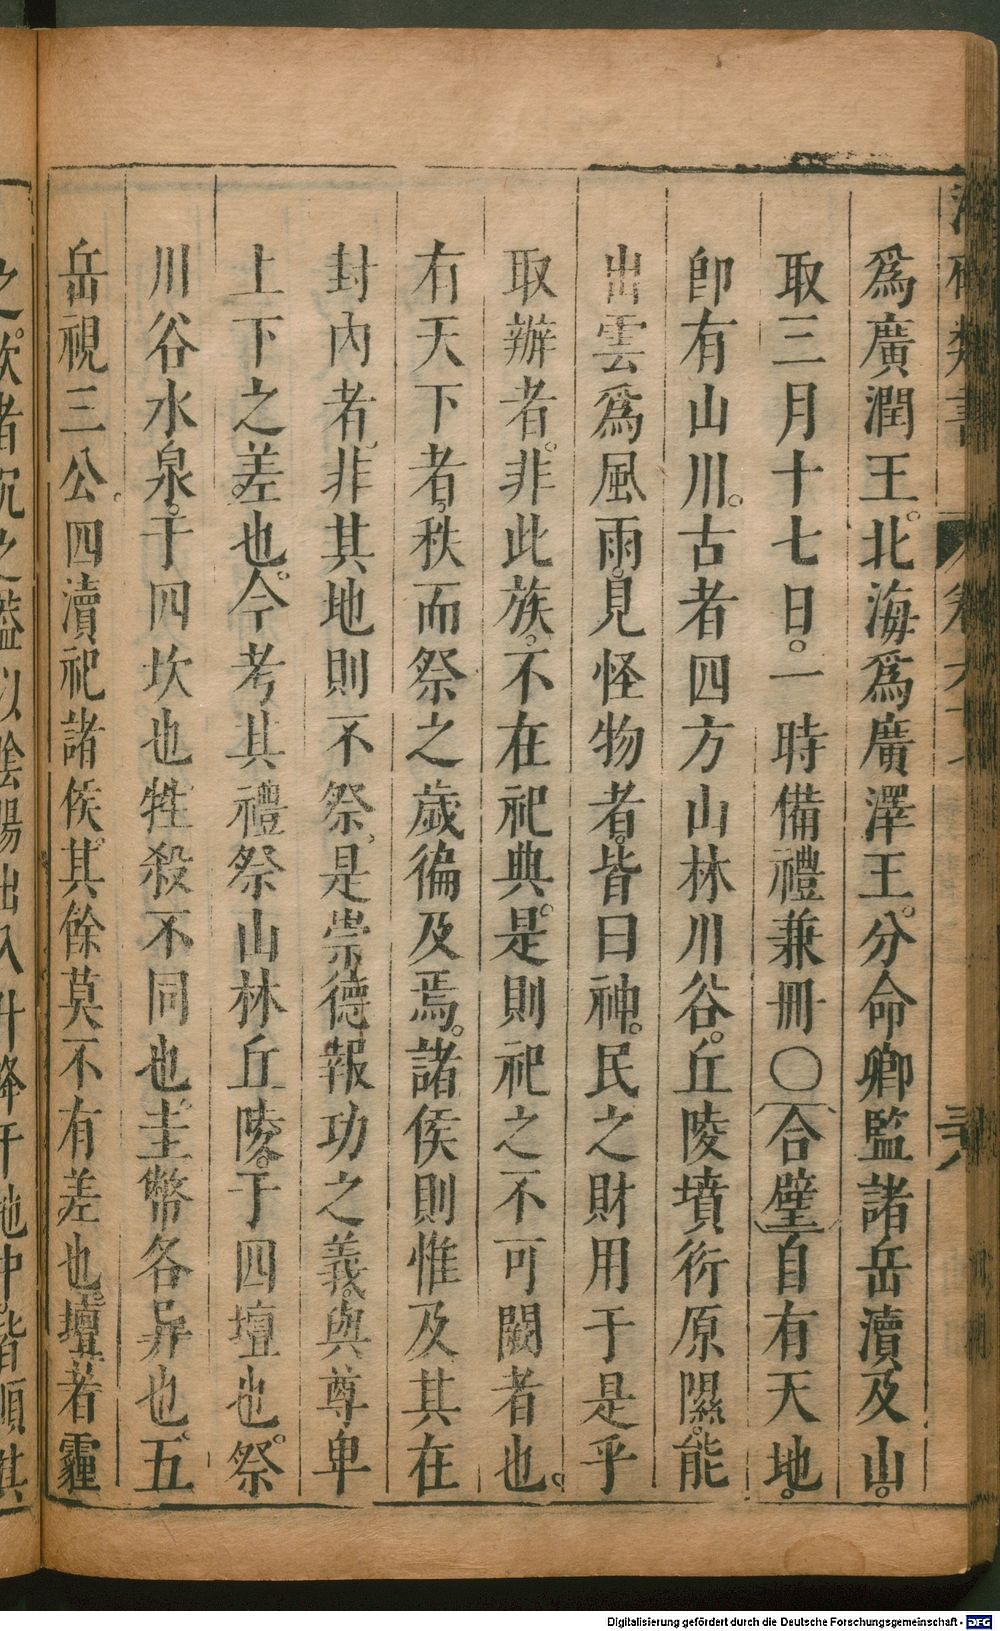 爲廣潤王。北海爲廣澤王。分命卿監諸岳瀆及山。
取三月十七日。一時備禮兼冊〇合璧自有天地。
卽有山川。古者四方山林川谷。丘陵墳衍原隰。能
出雲爲風雨。見怪物者。皆曰神。民之財用于是乎
取辦者。非此族。不在祀典。是則祀之不可闕者也。
有天下者。秩而祭之歲徧及焉。諸侯則惟及其在
封內者。非其地則不祭。是崇德報功之義。與尊卑
上下之差也。今考其禮祭山林丘陵。于四壇也。祭
川谷水泉。于四坎也牲殺不同也。圭幣各异也。五
岳視三公。四瀆祀諸侯。其餘莫不有差也。壇者霾
之。坎者沉之。蓋以陰陽出入升降于地中。皆順其
Digitalisierung gefördert durch die Deutsche Forschungsgemeinschaft - DFG